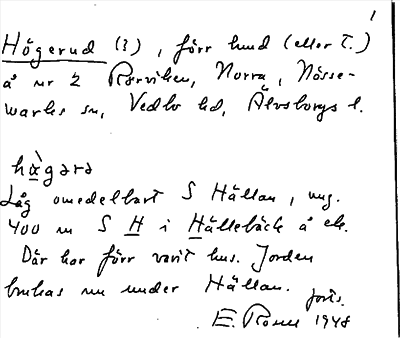 1
Högerud (?), förr lund (eller t.)
å nr 2 Rörviken, Norra, Nösse-
marks sn, Vedbo hd, Älvsborgs l.
hägərə
Låg omedelbart S Hällan, ung.
400 m S H i Hällebäck å ek.
Där har förr varit hus. Jorden
brukas nu under Hällan.
forts.
E. Rosell 1948